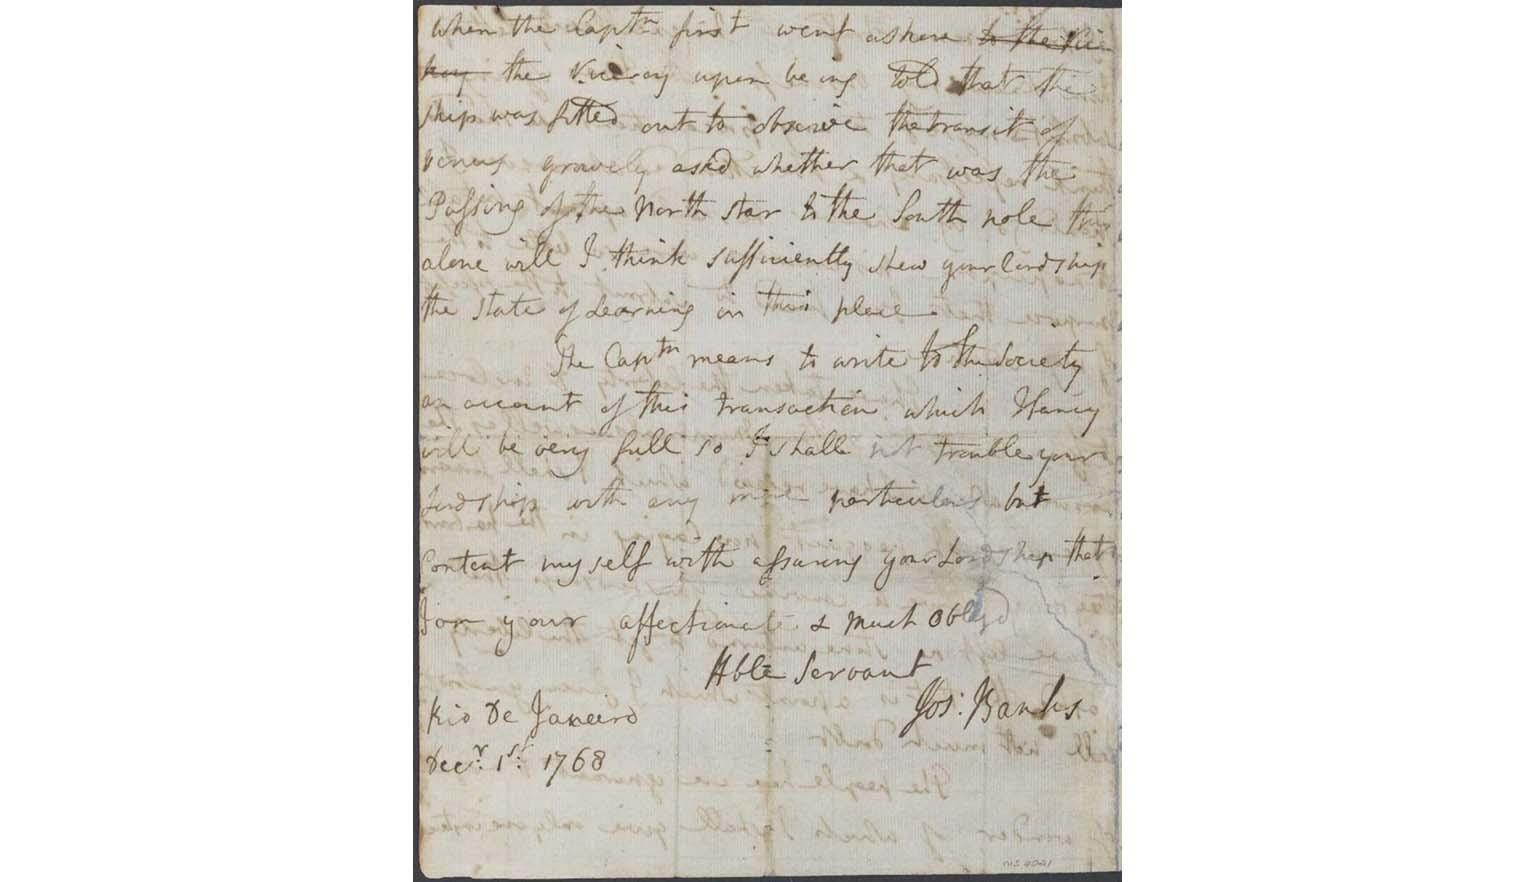 When the Captn first went ashore to the Vice
Roy the Viceroy upon being told that the
ship was fitted out to observe the transit of
venus gravely askd whether that was the
Passing of the North star to the South pole this
alone will I think sufficiently shew your Lordship
the state of Learning in this place
The Captn means to write to the Society
an account of this transaction which I fancy
will be very full so I shall not trouble your
Lordship with any more particulars but
Content myself with assuring your Lordship that
I am your affectionate & much Obligd
Hble Servant
Jos: Banks
Rio De Janeiro
Decr. 1st: 1768
MS 9091